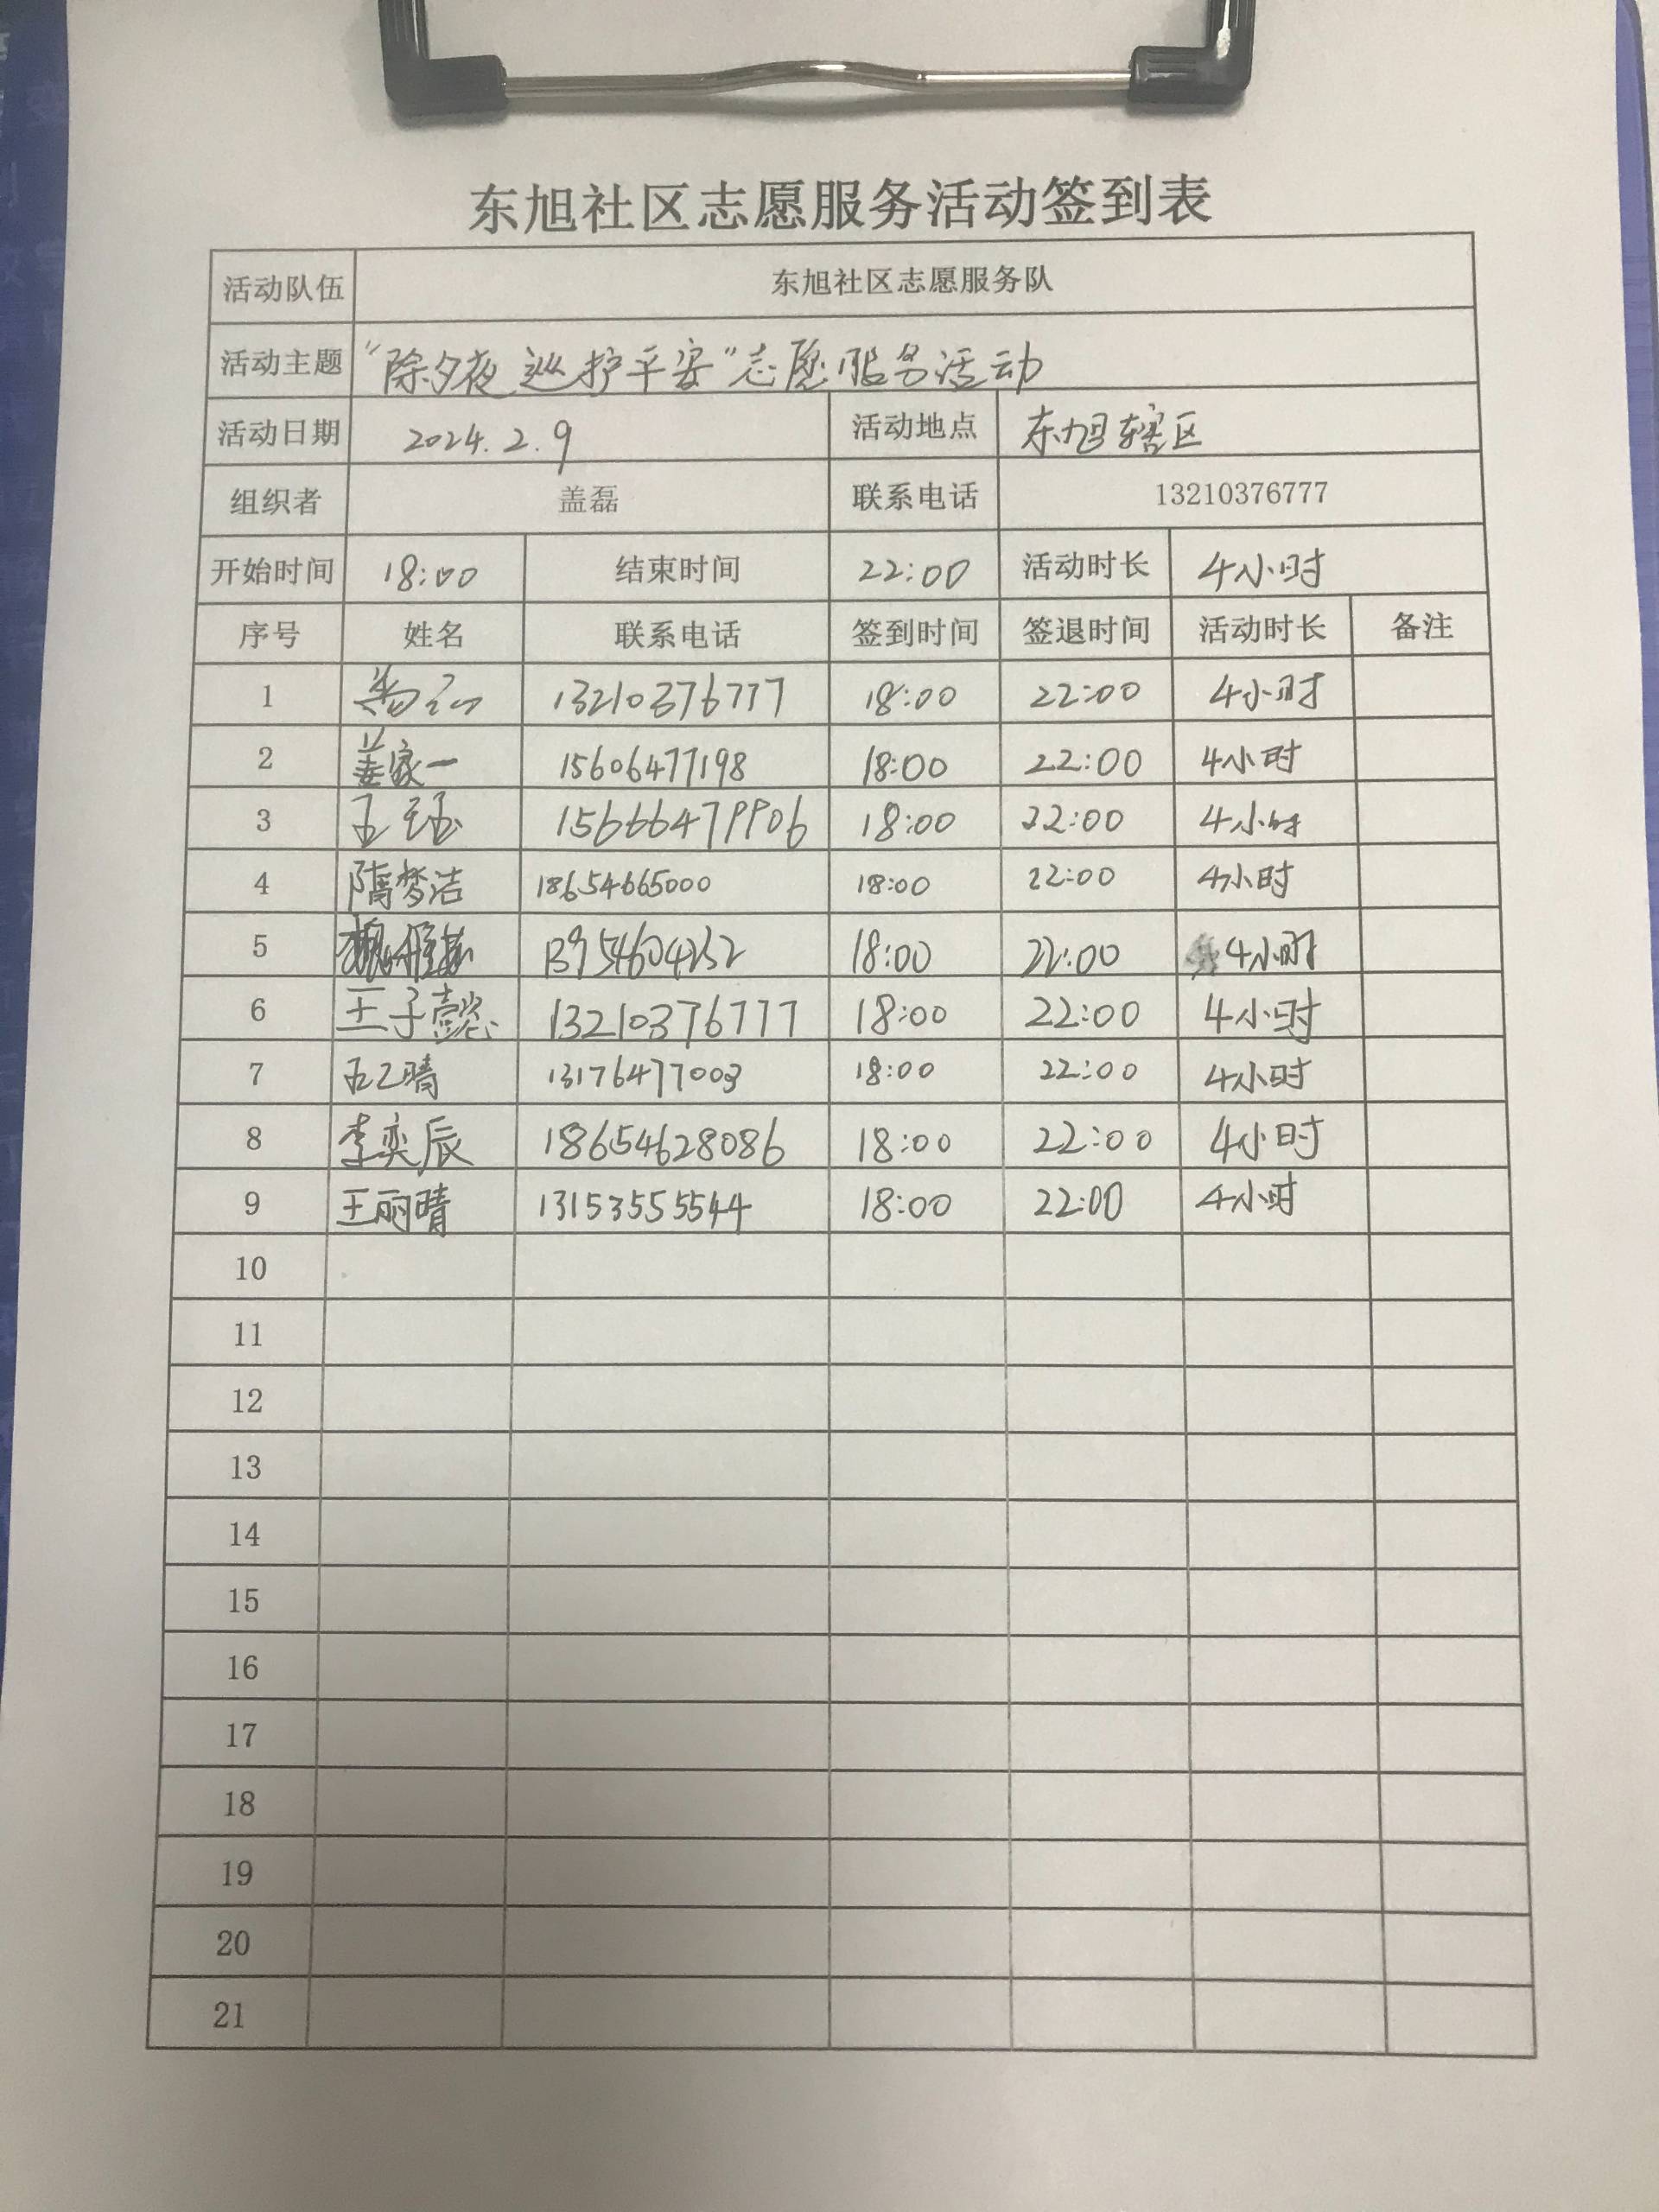 东旭社区志愿服务活动签到表
活动队伍 东旭社区志愿服务队
活动主题 "除夕夜 巡护平安"志愿服务活动
活动日期 2024.2.9 活动地点 东旭辖区
组织者 盖磊 联系电话 13210376777
开始时间 18:00 结束时间 22:00 活动时长 4小时
序号 姓名 联系电话 签到时间 签退时间 活动时长 备注
1 13210376777 18:00 22:00 4小时
2 姜家一 15606477198 18:00 22:00 4小时
3 15666479906 18:00 22:00 4小时
4 隋梦洁 18654665000 18:00 22:00 4小时
5 18:00 22:00 4小时
6 王子懿 13210376777 18:00 22:00 4小时
7 13176477003 18:00 22:00 4小时
8 李奕辰 18654628086 18:00 22:00 4小时
9 王丽晴 13153555544 18:00 22:00 4小时
10
11
12
13
14
15
16
17
18
19
20
21